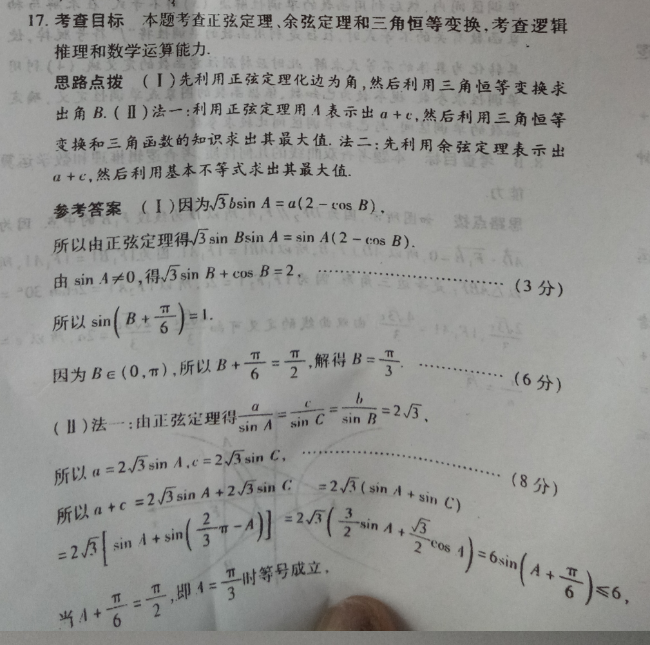 17. 考查目标 本题考查正弦定理,余弦定理和三角恒等变换,考查逻辑
推理和数学运算能力.
思路点拨 (Ⅰ)先利用正弦定理化边为角,然后利用三角恒等变换求
出角 B. (Ⅱ)法一:利用正弦定理用 A 表示出 a+c,然后利用三角恒等
变换和三角函数的知识求出其最大值. 法二:先利用余弦定理表示出
a+c,然后利用基本不等式求出其最大值.
参考答案 (Ⅰ)因为√3bsin A=a(2-cos B),
所以由正弦定理得√3sin Bsin A=sin A(2-cos B).
由 sin A≠0,得√3sin B+cos B=2, ……………………(3 分)
所以 sin(B+π/6)=1.
因为 B∈(0,π),所以 B+π/6=π/2,解得 B=π/3. …………(6 分)
(Ⅱ)法一:由正弦定理得a/sin A=c/sin C=b/sin B=2√3,
所以 a=2√3sin A,c=2√3sin C, ……………………(8 分)
所以 a+c =2√3sin A+2√3sin C =2√3(sin A+sin C)
=2√3[sin A+sin(2/3π-A)] =2√3(3/2sin A+√3/2cos A)=6sin(A+π/6)≤6,
当 A+π/6=π/2,即 A=π/3时等号成立.